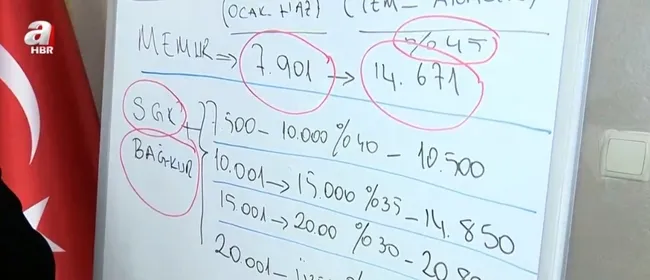 a
HBR
(OCAK
%45
MEMUR → 7.901 → 14.671
SGK
BAĞKUR
7.500 - 10.000 %40 - 10.500
10.001 → 15.000 %35 - 14.850
15.001 → 20.00 %30 - 20.8
20.001 -